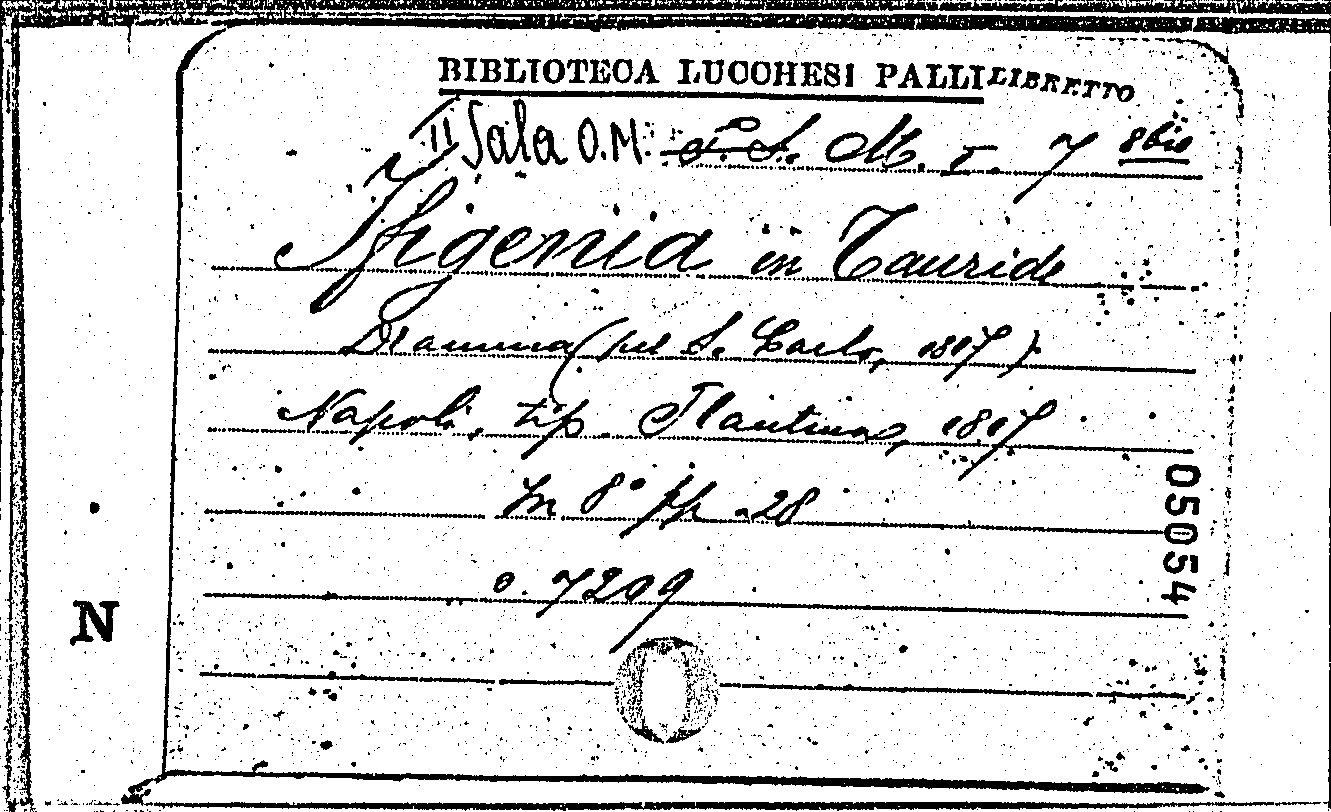 BIBLIOTECA LUCCHESI PALLI LIBRETTO
II Sala O.M. S. M. I. 7 8bis
Ifigenia in Tauride
Dramma (pel S. Carlo, 1817)
Napoli, tip. Flautina, 1817
In 8° pp. 28
o. 7209
05054
N